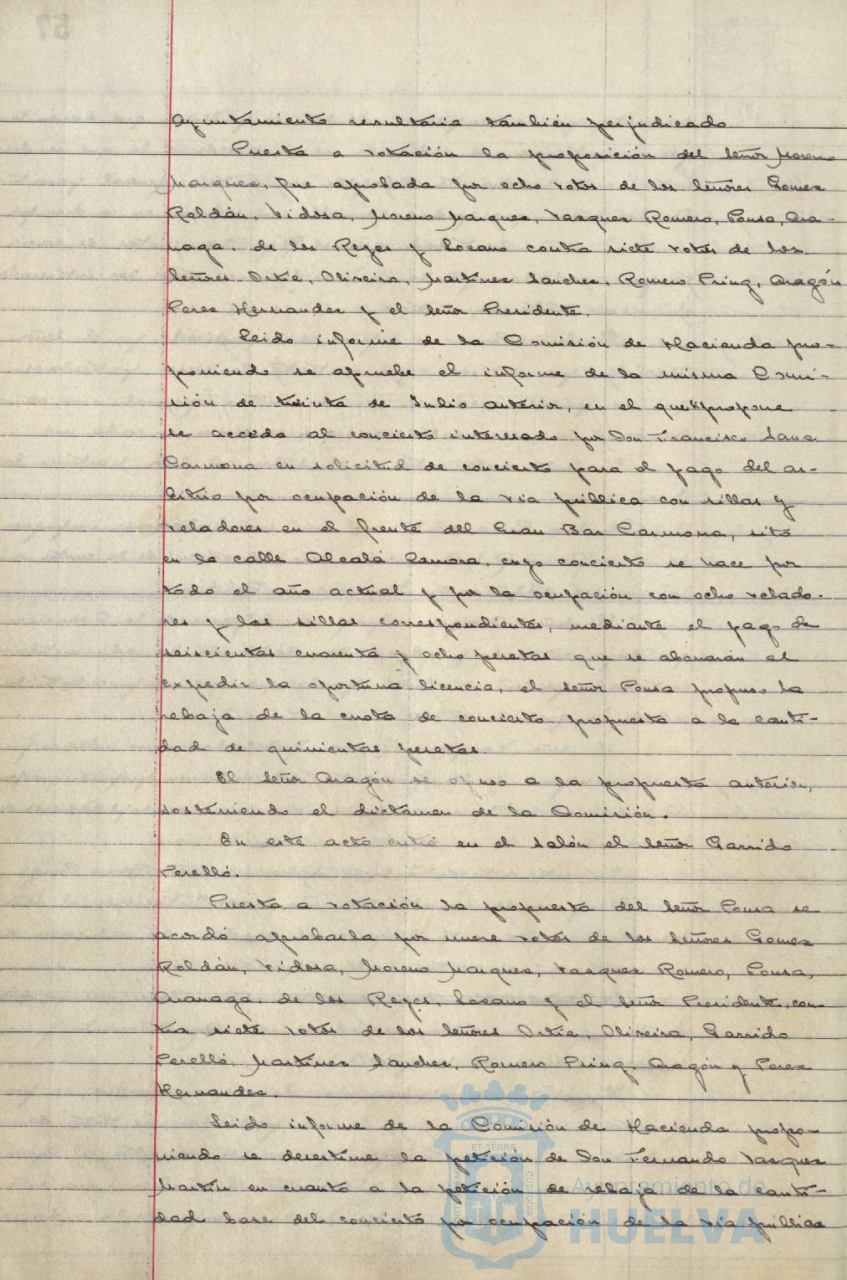 Ayuntamiento resultaria tambien perjudicado
Puesta a votación la proposición del Señor Moreno
Marquez, fue aprobada por ocho votos de los Señores Gomez
Roldán, Vidosa, Moreno Marquez, Vazquez Romero, Ponsa, Ara-
naga, de los Reyes y Lozano contra siete votos de los
Señores Ortiz, Oliveira, Martinez Sanchez, Romero Pring, Aragón
Perez Hernandez y el Señor Presidente.
Leido informe de la Comisión de Hacienda pro-
poniendo se apruebe el informe de la misma Comi-
sión de treinta de Julio anterior, en el que propone
se acceda al concierto interesado por Don Francisco
Carmona en solicitud de concierto para el pago del ar-
bitrio por ocupación de la via pública con sillas y
veladores en el frente del Gran Bar Carmona, sito
en la calle Alcalá Zamora, cuyo concierto se hace por
todo el año actual y por la ocupación con ocho velado-
res y las sillas correspondientes, mediante el pago de
seiscientas cuarenta y ocho pesetas que se abonarán al
expedir la oportuna licencia, el señor Ponsa propuso la
rebaja de la cuota de concierto propuesta a la canti-
dad de quinientas pesetas.
El Señor Aragón se opuso a la propuesta anterior,
sosteniendo el dictámen de la Comisión.
En este acto entró en el salón el Señor Garrido
Perelló.
Puesta a votación la propuesta del Señor Ponsa se
acordó aprobarla por nueve votos de los Señores Gomez
Roldán, Vidosa, Moreno Marquez, Vazquez Romero, Ponsa,
Aranaga, de los Reyes, Lozano y el Señor Presidente, con-
tra siete votos de los Señores Ortiz, Oliveira, Garrido
Perelló, Martinez Sanchez, Romero Pring, Aragón y Perez
Hernandez.
Leido informe de la Comisión de Hacienda propo-
niendo se desestime la petición de Don Fernando Vazquez
Martin en cuanto a la petición de rebaja de la canti-
dad base del concierto por ocupación de la via pública
Ayuntamiento de
HUELVA